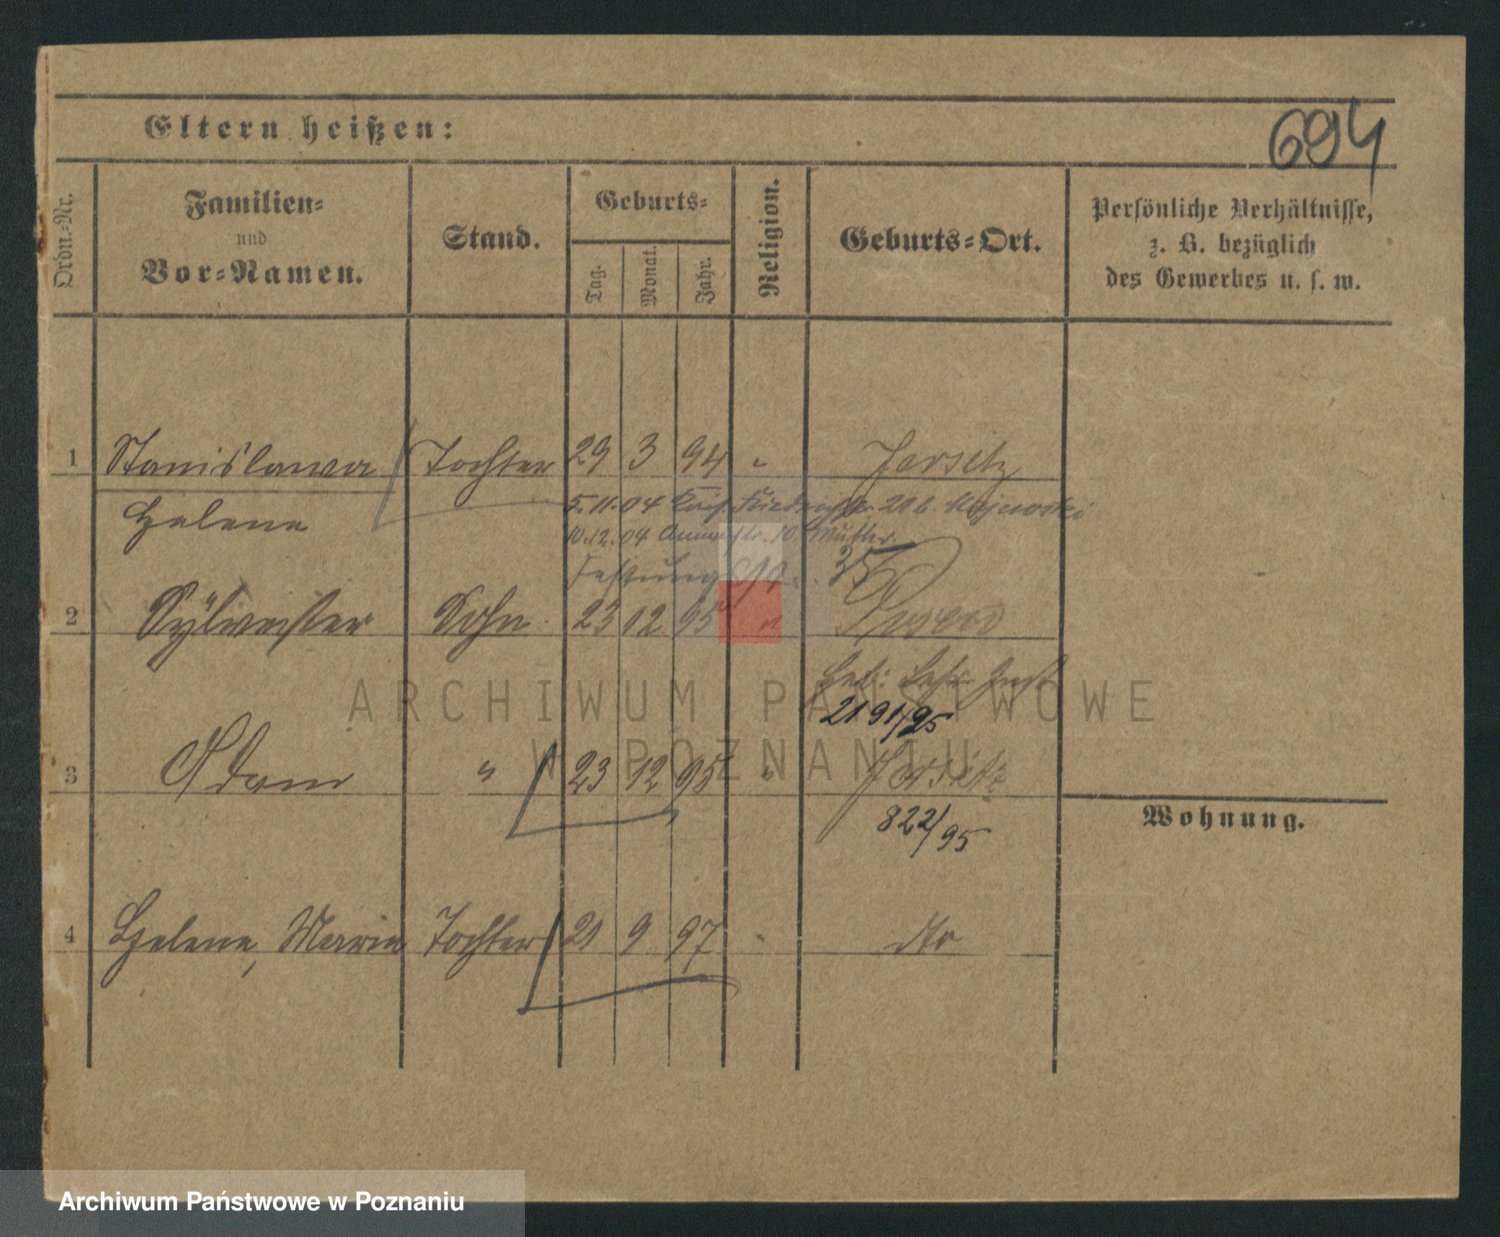 Eltern heißen:
694
Ordn.-Nr.
Familien-
und
Vor-Namen.
Stand.
Geburts-
Tag.
Monat.
Jahr.
Religion.
Geburts-Ort.
Persönliche Verhältnisse,
z. B. bezüglich
des Gewerbes u. s. w.
1 Stanislawa Tochter 29 3 94 " Jersitz
Helene
5.11.04 21 b. Majewski
10.12.04 10. Mutter.
2 Sylvester Sohn 23 12 95 "
ARCHIWUM PAŃSTWOWE
W POZNANIU
2191/95
3 Adam " 23 12 95 " Jersitz
822/95
Wohnung.
4 Helene, Maria Tochter 21 9 97 " dto
Archiwum Państwowe w Poznaniu